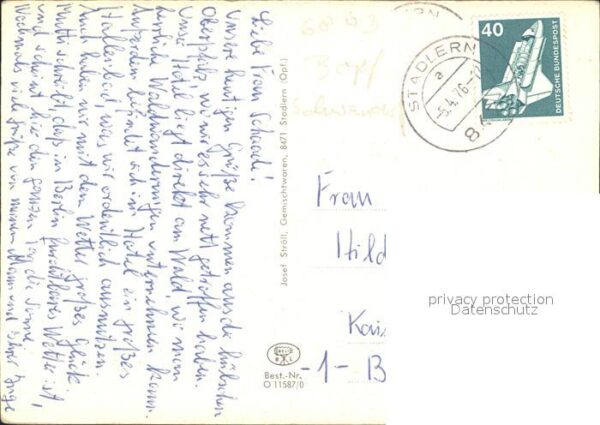 Liebe Frau Schade!
Unsere heutigen Grüße kommen aus der hübschen
Oberpfalz, wo wir es sehr nett getroffen haben.
Unser Hotel liegt direkt am Wald, wo man
herrliche Waldwanderungen unternehmen kann.
Außerdem befindet sich im Hotel ein großes
Hallenbad, was wir ordentlich ausnützen.
Auch haben wir mit dem Wetter großes Glück.
Mutti schreibt, daß in Berlin furchtbares Wetter ist,
und scheint hier den ganzen Tag die Sonne.
Nochmals viele Grüße von meinem Mann und Ihrer Inge
Josef Ströll, Gemischtwaren, 8471 Stadlern (Opf.)
Best.-Nr.
O 11587/0
STADLERN
a
-5.4.76-
8
40
DEUTSCHE BUNDESPOST
Frau
Hild
Kai
-1-B
privacy protection
Datenschutz